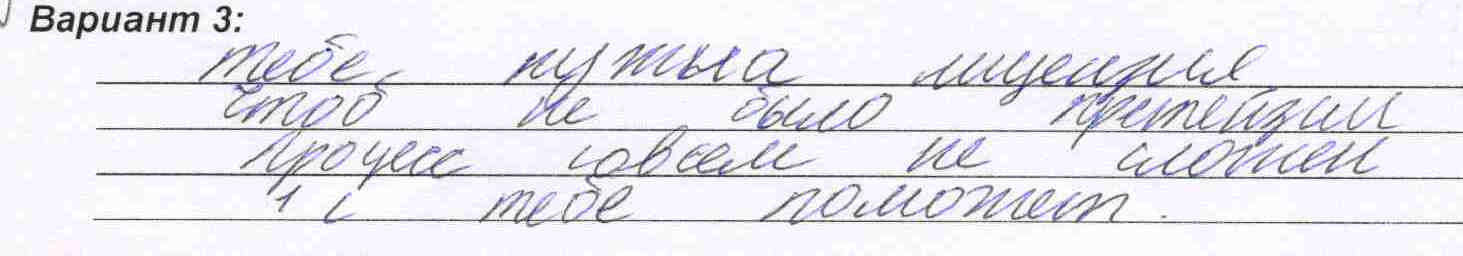 Вариант 3:
тебе нужна лицензия
чтоб не было претензии
процесс совсем не сложен
1 с тебе поможет.